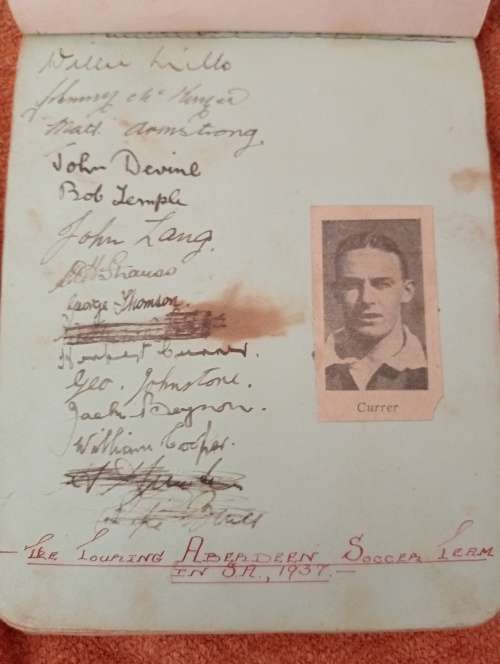 Willie Mills
Johnny McKenzie
Matt Armstrong.
John Devine
Bob Temple
John Lang.
Strauss
George Thomson.
Herbert Currer.
Geo. Johnstone.
Jack Beynon.
William Cooper.
Currer
The Touring Aberdeen Soccer Team
in S.A., 1937.